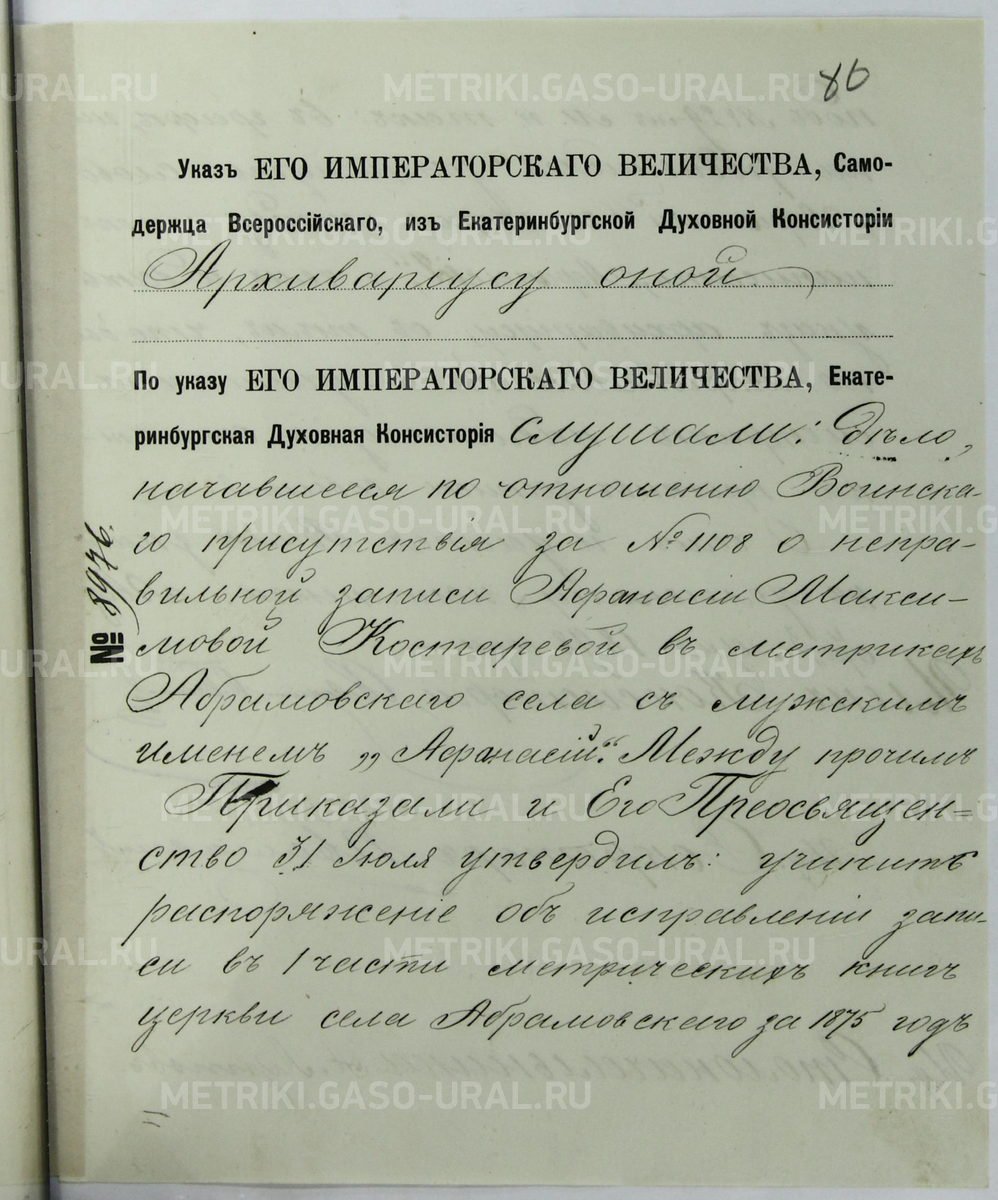 86
Указъ ЕГО ИМПЕРАТОРСКАГО ВЕЛИЧЕСТВА, Само-
держца Всероссійскаго, изъ Екатеринбургской Духовной Консисторіи
Архиваріусу оной
По указу ЕГО ИМПЕРАТОРСКАГО ВЕЛИЧЕСТВА, Екате-
ринбургская Духовная Консисторія слушали: Дѣло,
начавшееся по отношенію Воинска-
го присутствія за № 1108 о непра-
вильной записи Афанасіи Макси-
мовой Костаревой въ метрикахъ
Абрамовскаго села съ мужскимъ
именемъ „Афанасій“. Между прочимъ
Приказали и Его Преосвящен=
ство 31 Іюля утвердилъ: учинить
распоряженіе объ исправленіи запи-
си въ 1 части метрическихъ книгъ
церкви села Абрамовскаго за 1875 годъ
№ 8976.
METRIKI.GASO-URAL.RU